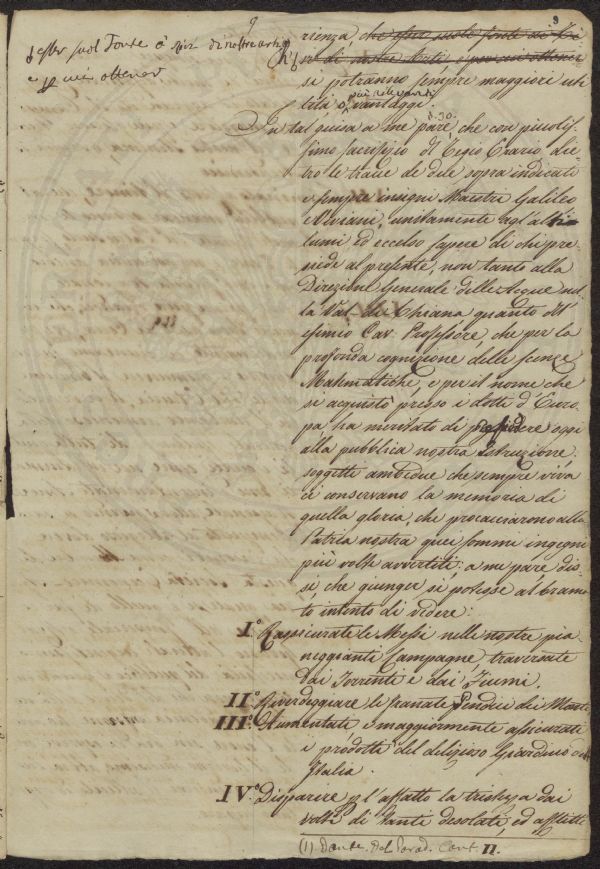 9
3
esser suol Fonte a rivi di nostre arti
e più ottener
rienza, che esser suole fonte ai Ri
vi di nostre Arti, e più ottener
si potranno sempre maggiori uti
lità e più rilevanti vantaggi.
In tal guisa a me pare, che con piccolis
simo sacrifizio del Regio Erario die
tro le tracce de' due sopra indicati
e sempre insigni Maestri Galileo
e Viviani, unitamente agl'alti
lumi ed eccelso sapere di chi pre
siede al presente, non tanto alla
Direzione Generale delle Acque nel
la Val-di-Chiana quanto dell'
esimio Cav. Professore, che per la
profonda cognizione delle scienze
Matematiche, e per il nome che
si acquistò presso i dotti d'Euro
pa ha meritato di presiedere oggi
alla pubblica nostra Istruzione
soggetti ambidue che sempre viva
ci conservano la memoria di
quella gloria, che procacciarono alla
Patria nostra quei sommi ingegni
più volte avvertiti: a me pare dis
si, che giunger si potesse al brama
to intento di vedere:
I.° Rassicurate le Messi nelle nostre pia
neggianti Campagne, traversate
dai Torrenti e dai Fiumi.
II.° Rinverdeggiare le franate Pendici di Monte
III.° Aumentate e maggiormente assicurati
i prodotti del delizioso Giardino d'
Italia.
IV.° Disparire per l'affatto la tristezza dai
volti di tanti desolati, ed afflitti
(1) Dante. Del Parad. Cant. II.